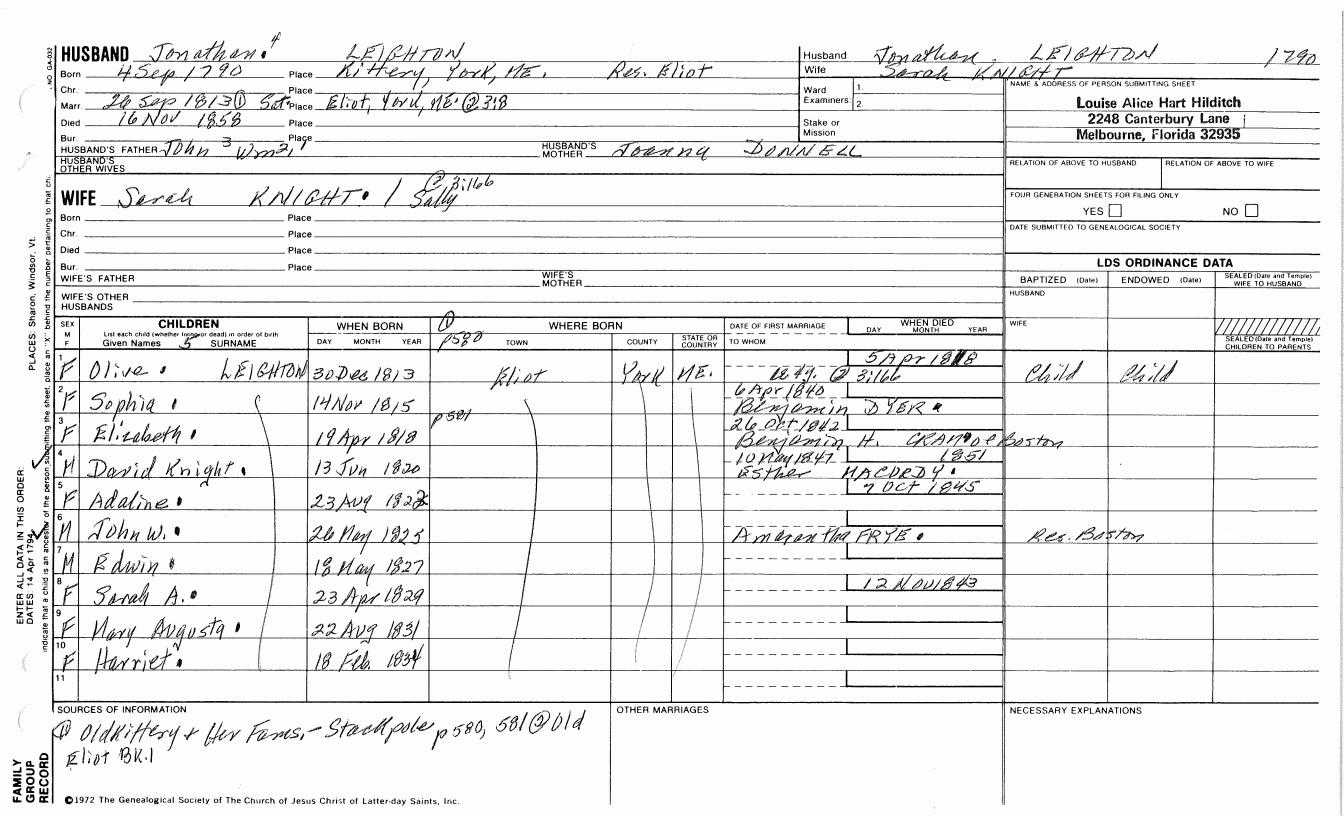 HUSBAND Jonathan 4 LEIGHTON
Born 4 Sep 1790 Place Kittery, York, ME. Res. Eliot
Chr. Place
Marr. 26 Sep 1813 ① Sat. Place Eliot, York, ME. ② 3:8
Died 16 Nov 1858 Place
Bur. Place
HUSBAND'S FATHER John 3 Wm 2, 1 HUSBAND'S MOTHER Joanna DONNELL
HUSBAND'S OTHER WIVES
WIFE Sarah KNIGHT / Sally ② 3:166
Born Place
Chr. Place
Died Place
Bur. Place
WIFE'S FATHER WIFE'S MOTHER
WIFE'S OTHER HUSBANDS
Husband Jonathan LEIGHTON 1790
Wife Sarah KNIGHT
Ward 1.
Examiners 2.
Stake or Mission
NAME & ADDRESS OF PERSON SUBMITTING SHEET
Louise Alice Hart Hilditch
2248 Canterbury Lane
Melbourne, Florida 32935
RELATION OF ABOVE TO HUSBAND RELATION OF ABOVE TO WIFE
FOUR GENERATION SHEETS FOR FILING ONLY
YES NO
DATE SUBMITTED TO GENEALOGICAL SOCIETY
LDS ORDINANCE DATA
BAPTIZED (Date) ENDOWED (Date) SEALED (Date and Temple) WIFE TO HUSBAND
HUSBAND
WIFE
SEALED (Date and Temple) CHILDREN TO PARENTS
SEX M F CHILDREN WHEN BORN ① p580 WHERE BORN DATE OF FIRST MARRIAGE WHEN DIED
List each child (whether living or dead) in order of birth
Given Names 5 SURNAME DAY MONTH YEAR TOWN COUNTY STATE OR COUNTRY TO WHOM DAY MONTH YEAR
1 F Olive LEIGHTON 30 Dec 1813 Eliot York ME. 5 Apr 1818 ② 3:166 Child Child
2 F Sophia 14 Nov 1815 p581 6 Apr 1840 Benjamin DYER
3 F Elizabeth 19 Apr 1818 26 Oct 1842 Benjamin H. Boston
4 M David Knight 13 Jun 1820 10 May 1847 1851 Esther MACURDY
5 F Adaline 23 Aug 1822 7 Oct 1845
6 M John W. 26 May 1825 Amarantha FRYE Res. Boston
7 M Edwin 18 May 1827
8 F Sarah A. 23 Apr 1829 12 Nov 1843
9 F Mary Augusta 22 Aug 1831
10 F Harriet 18 Feb. 1834
11
SOURCES OF INFORMATION
① Old Kittery & Her Fams. - Stackpole p 580, 581 ② Old
Eliot BK.1
OTHER MARRIAGES
NECESSARY EXPLANATIONS
©1972 The Genealogical Society of The Church of Jesus Christ of Latter-day Saints, Inc.
FAMILY GROUP RECORD
ENTER ALL DATA IN THIS ORDER
DATES: 14 Apr 1794
PLACES: Sharon, Windsor, Vt.
NO. GA-032